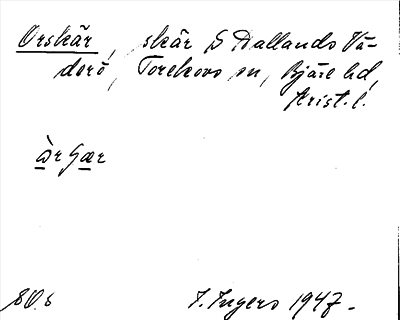 Orskär, skär S Hallands Vä-
derö, Torekovs sn, Bjäre hd,
Krist. l.
I. Ingers 1947.